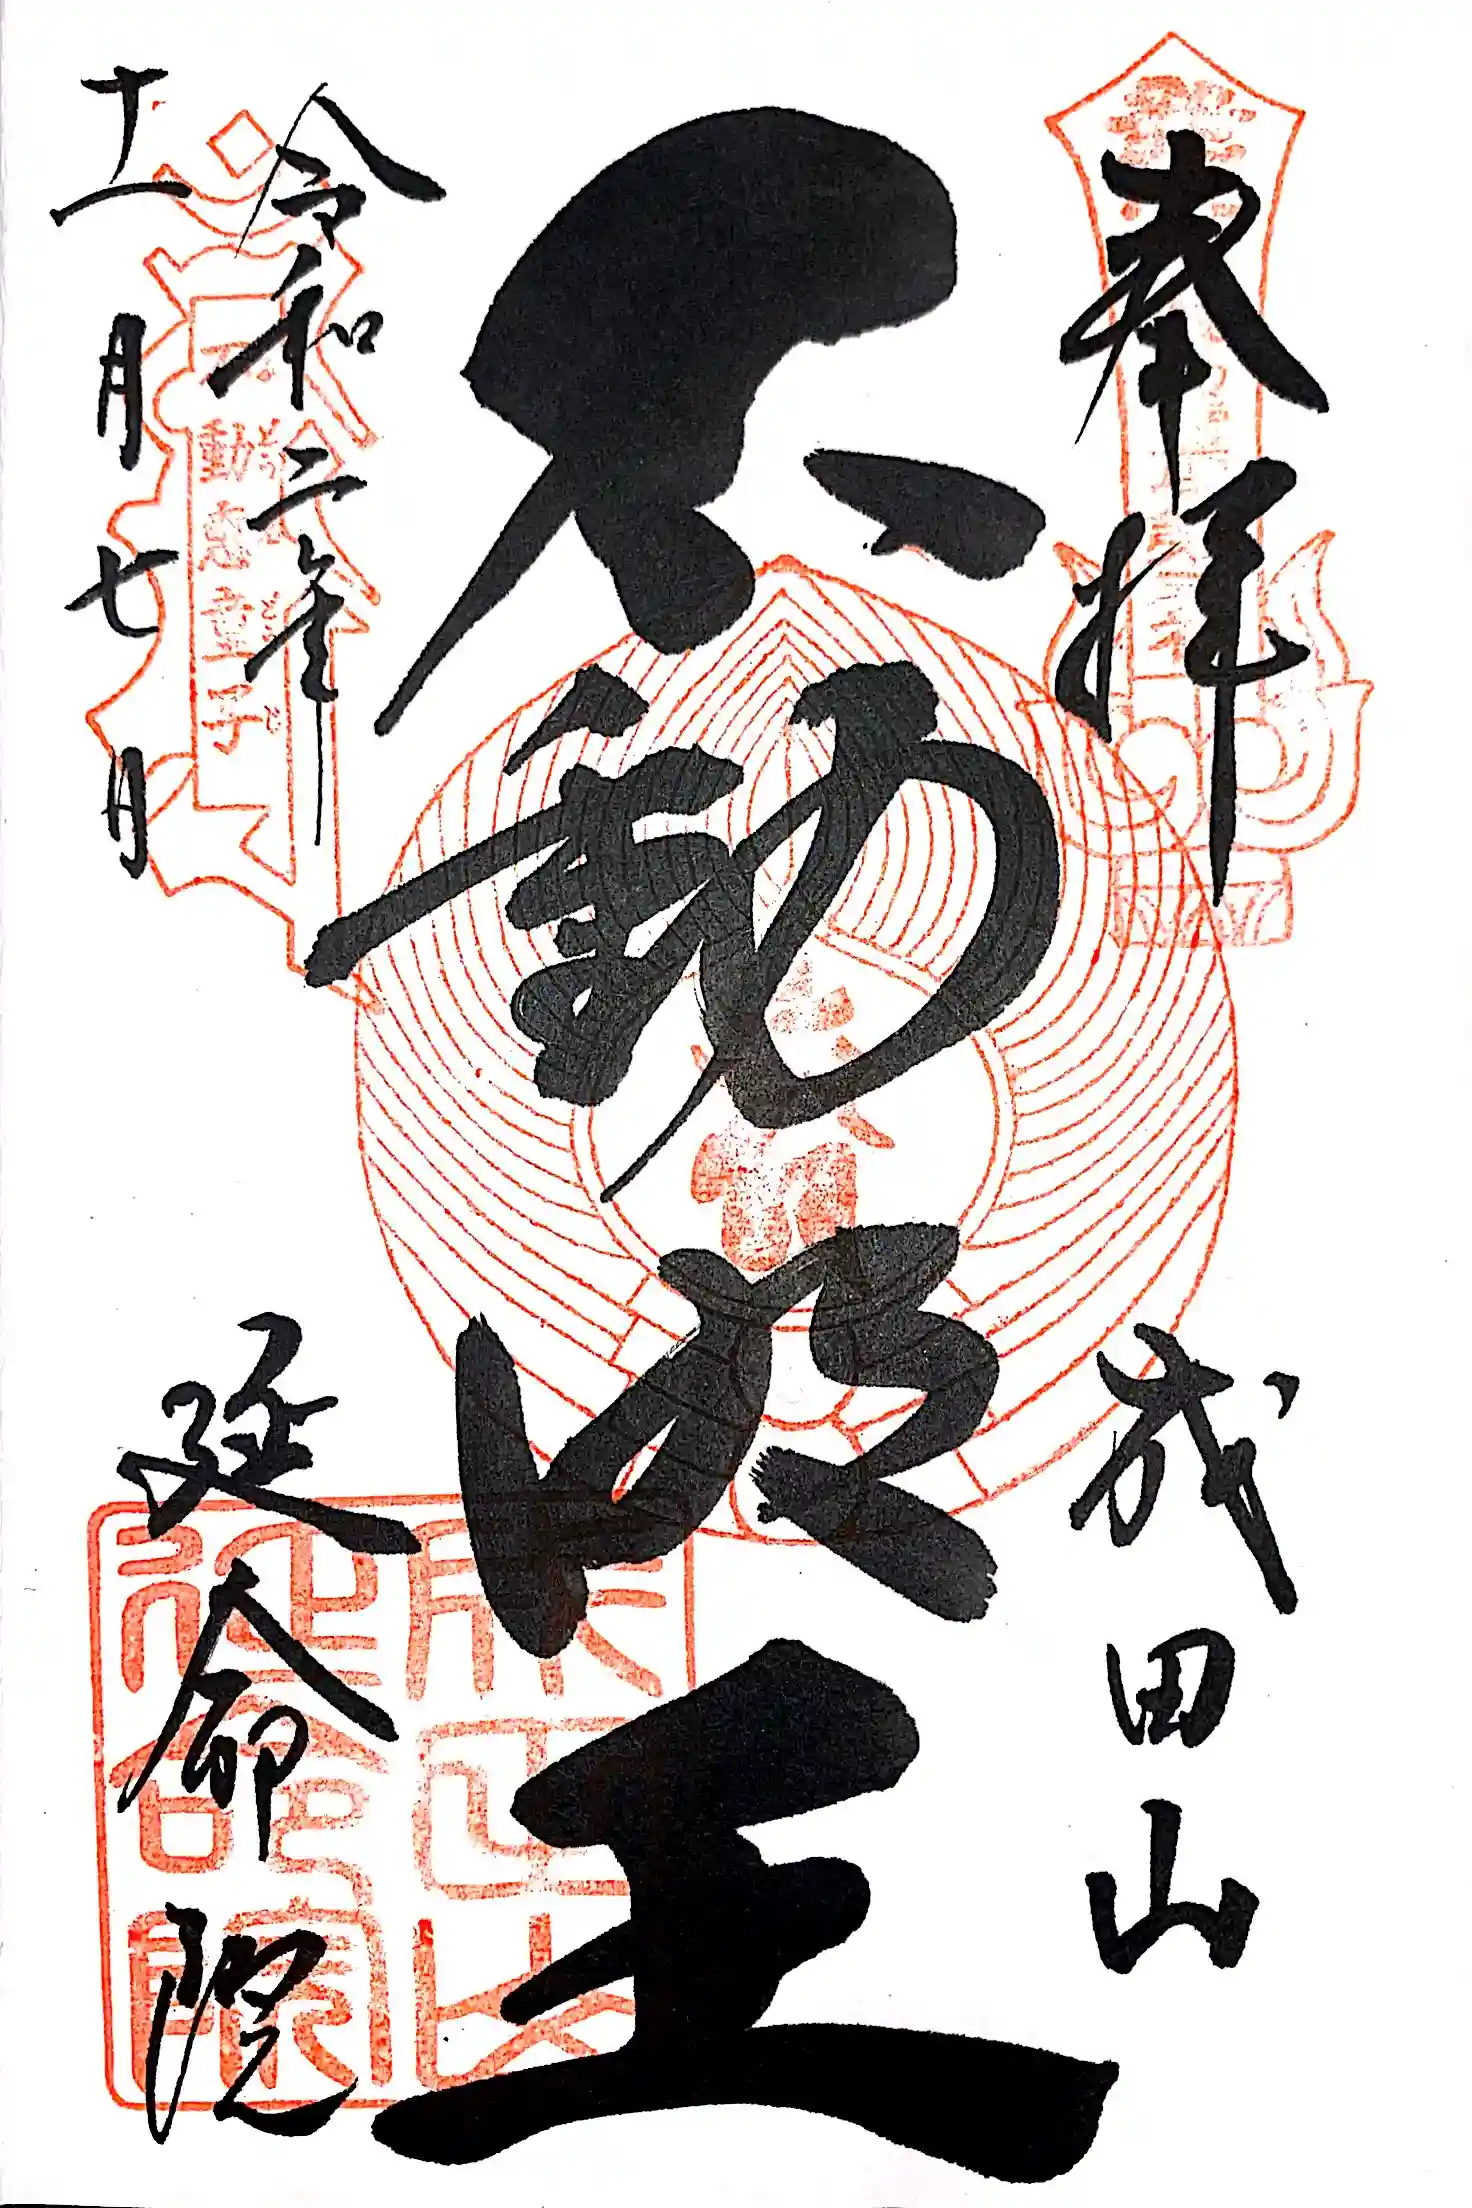 奉拝
成田山
不動明王
令和二年
十一月七日
延命院
不動恵童子
成田山
延命院